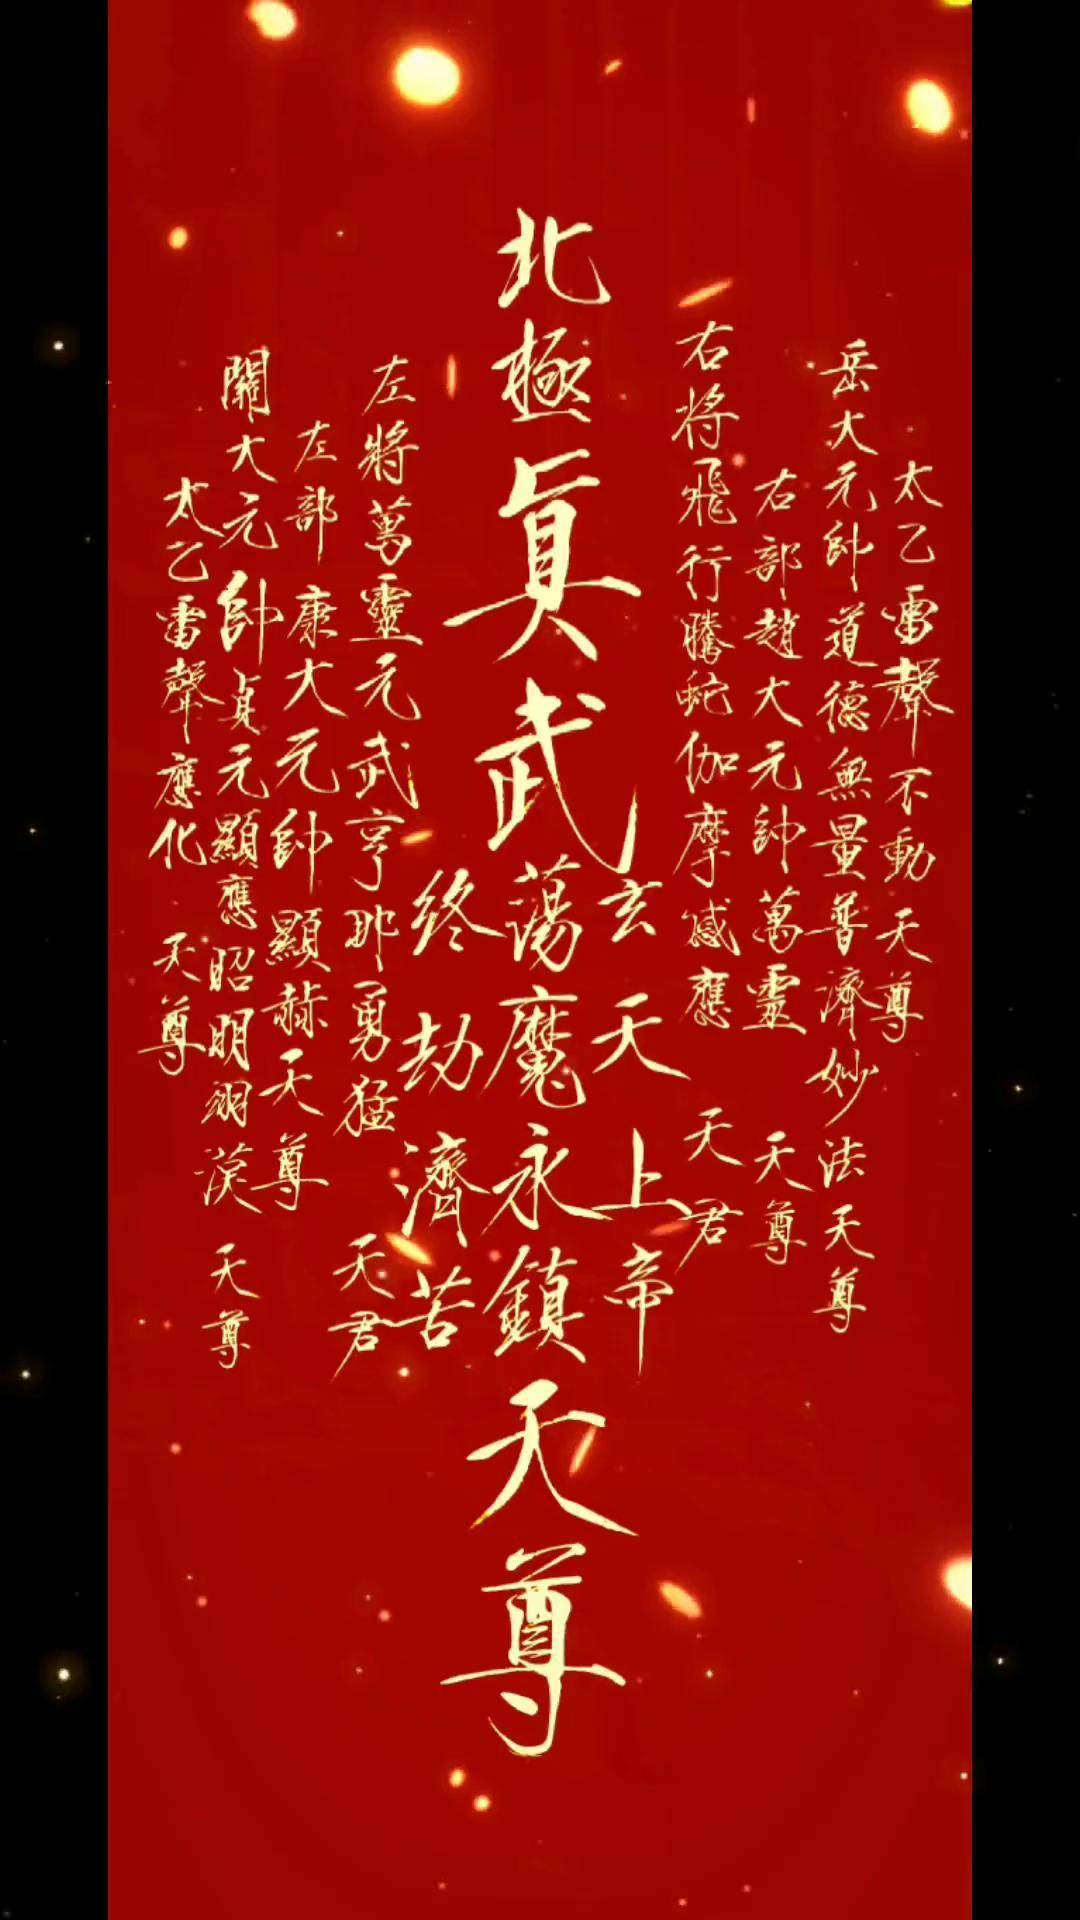 太乙雷聲不動天尊
岳大元帥道德無量普濟妙法天尊
右部趙大元帥萬靈天尊
右將飛行騰蛇伽摩感應天君
玄天上帝
北極眞武蕩魔永鎮天尊
終劫濟苦
左將萬靈元武亨那勇猛天君
左部康大元帥顯赫天尊
關大元帥貞元顯應昭明翊漢天尊
太乙雷聲應化天尊